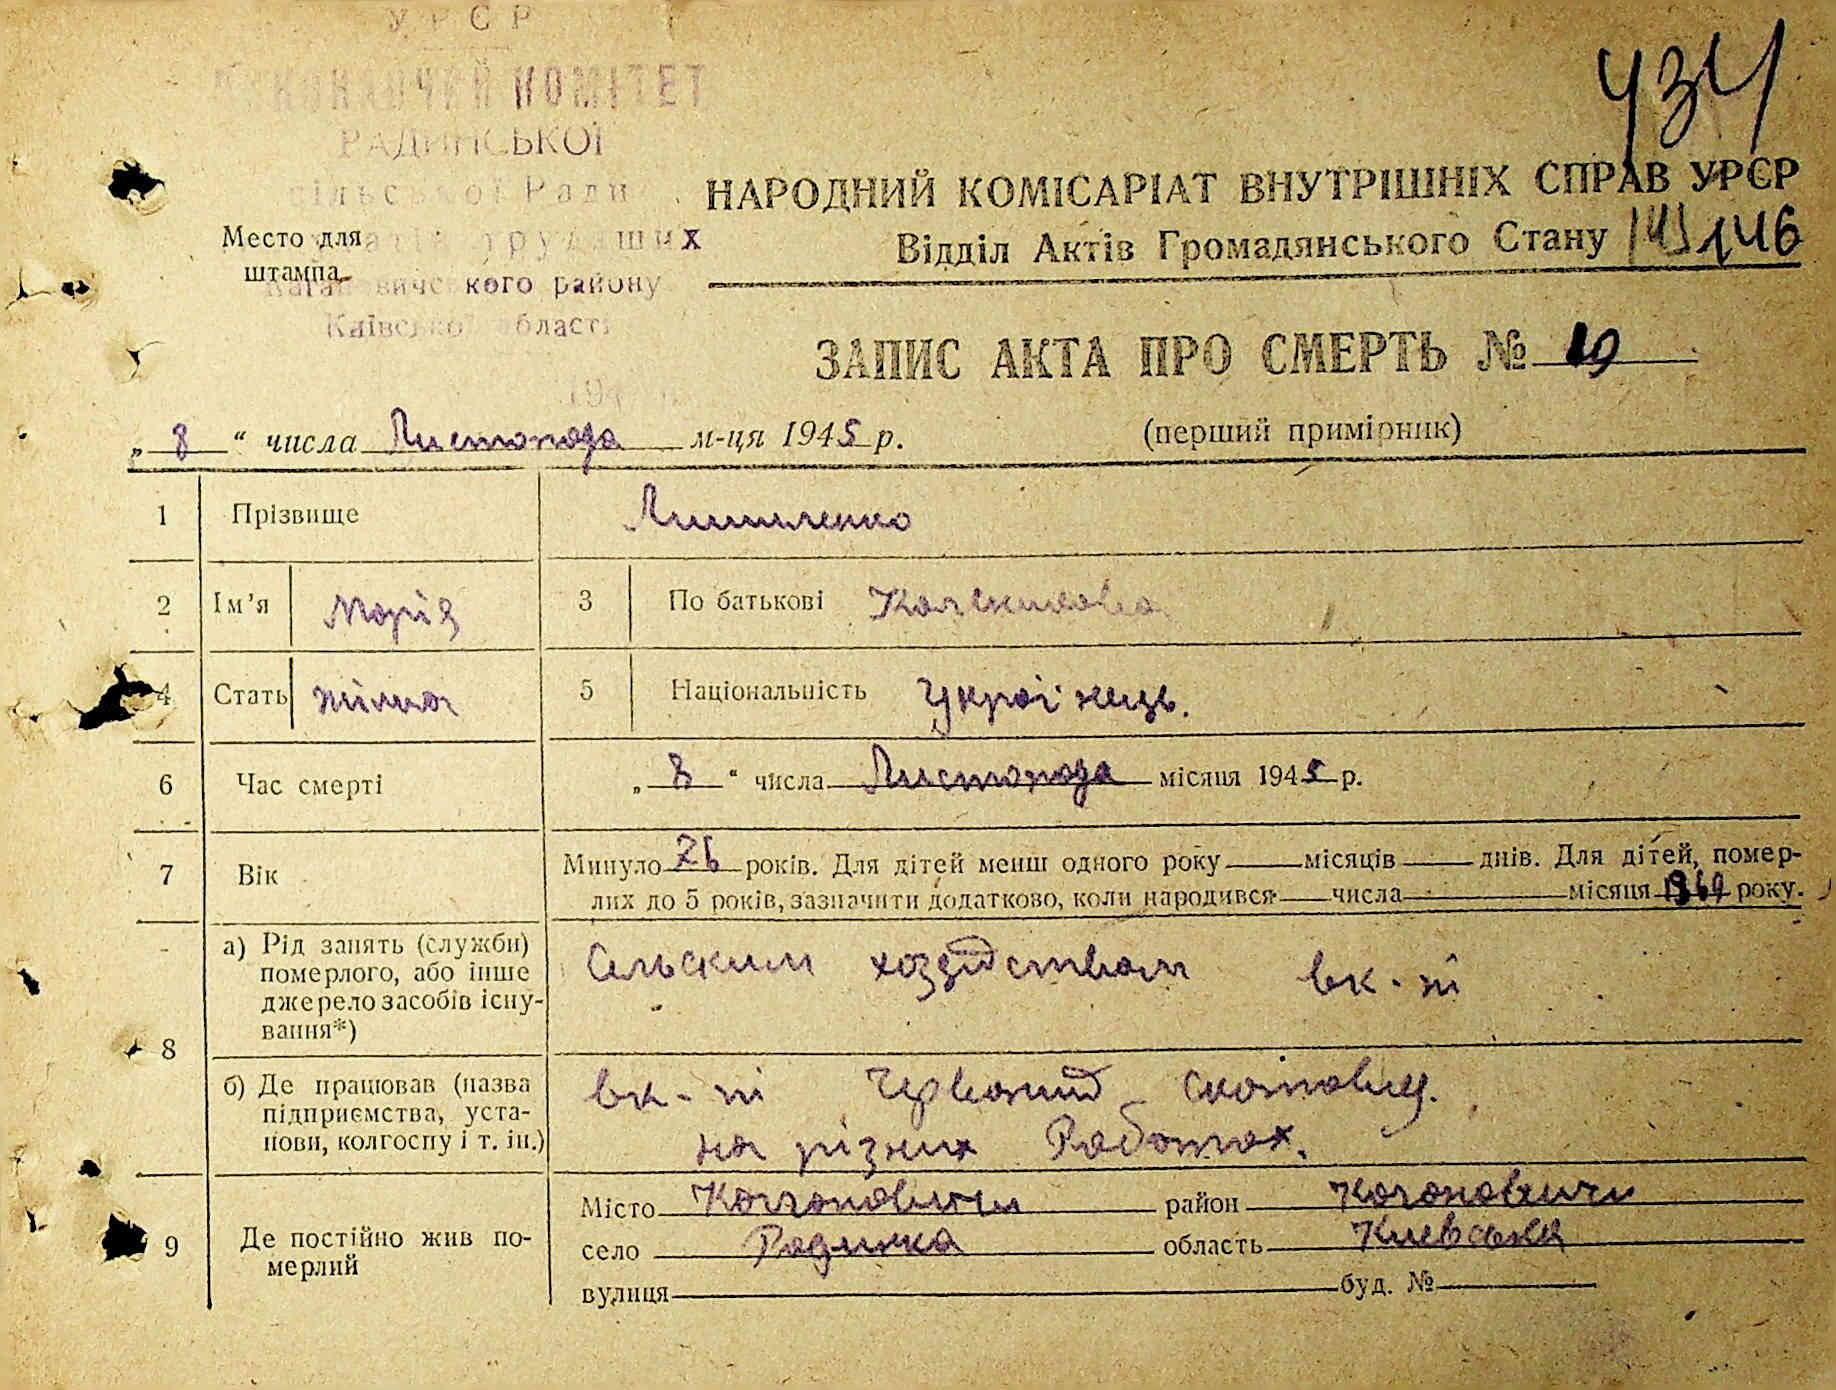 УРСР
ВИКОНАВЧИЙ КОМІТЕТ
РАДИНСЬКОЇ
сільської Ради
депутатів трудящих
Кагановичського району
Київської області
434
НАРОДНИЙ КОМІСАРІАТ ВНУТРІШНІХ СПРАВ УРСР
Место для штампа
Відділ Актів Громадянського Стану 146
ЗАПИС АКТА ПРО СМЕРТЬ № 19
„ 8 “ числа Листопада м-ця 1945 р. (перший примірник)
1 Прізвище
2 Ім'я Марія 3 По батькові
4 Стать жіноча 5 Національність Украінець.
6 Час смерті „ 8 “ числа Листопада місяця 1945 р.
7 Вік Минуло 76 років. Для дітей менш одного року місяців днів. Для дітей, помер-
лих до 5 років, зазначити додатково, коли народився числа місяця 1869 року.
8 а) Рід занять (служби) померлого, або інше джерело засобів існу-вання*) Сельским хозяйством вк-п
б) Де працював (назва підприємства, уста-нови, колгоспу і т. ін.) вк-п Червоний скотовод.
на різних Роботах.
9 Де постійно жив по-мерлий Місто Кагановичи район Кагановичи
село Радинка область Киевська
вулиця буд. №